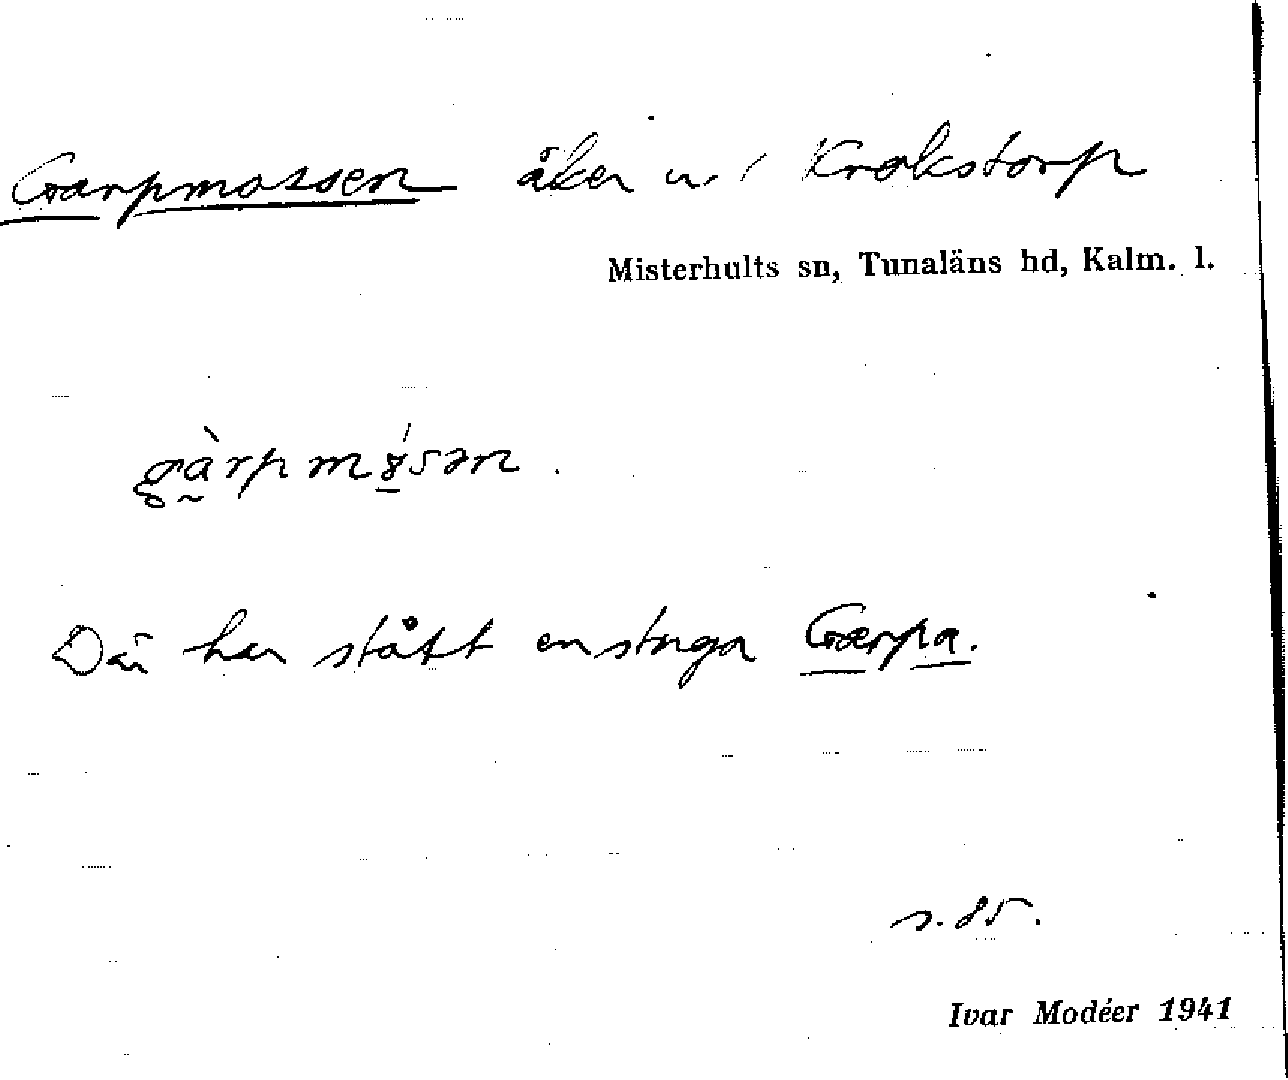 Garpmossen åker u. Krokstorp
Misterhults sn, Tunaläns hd, Kalm. l.
gàrpmósən.
Där har stått en stuga Garpa.
s. 85.
Ivar Modéer 1941